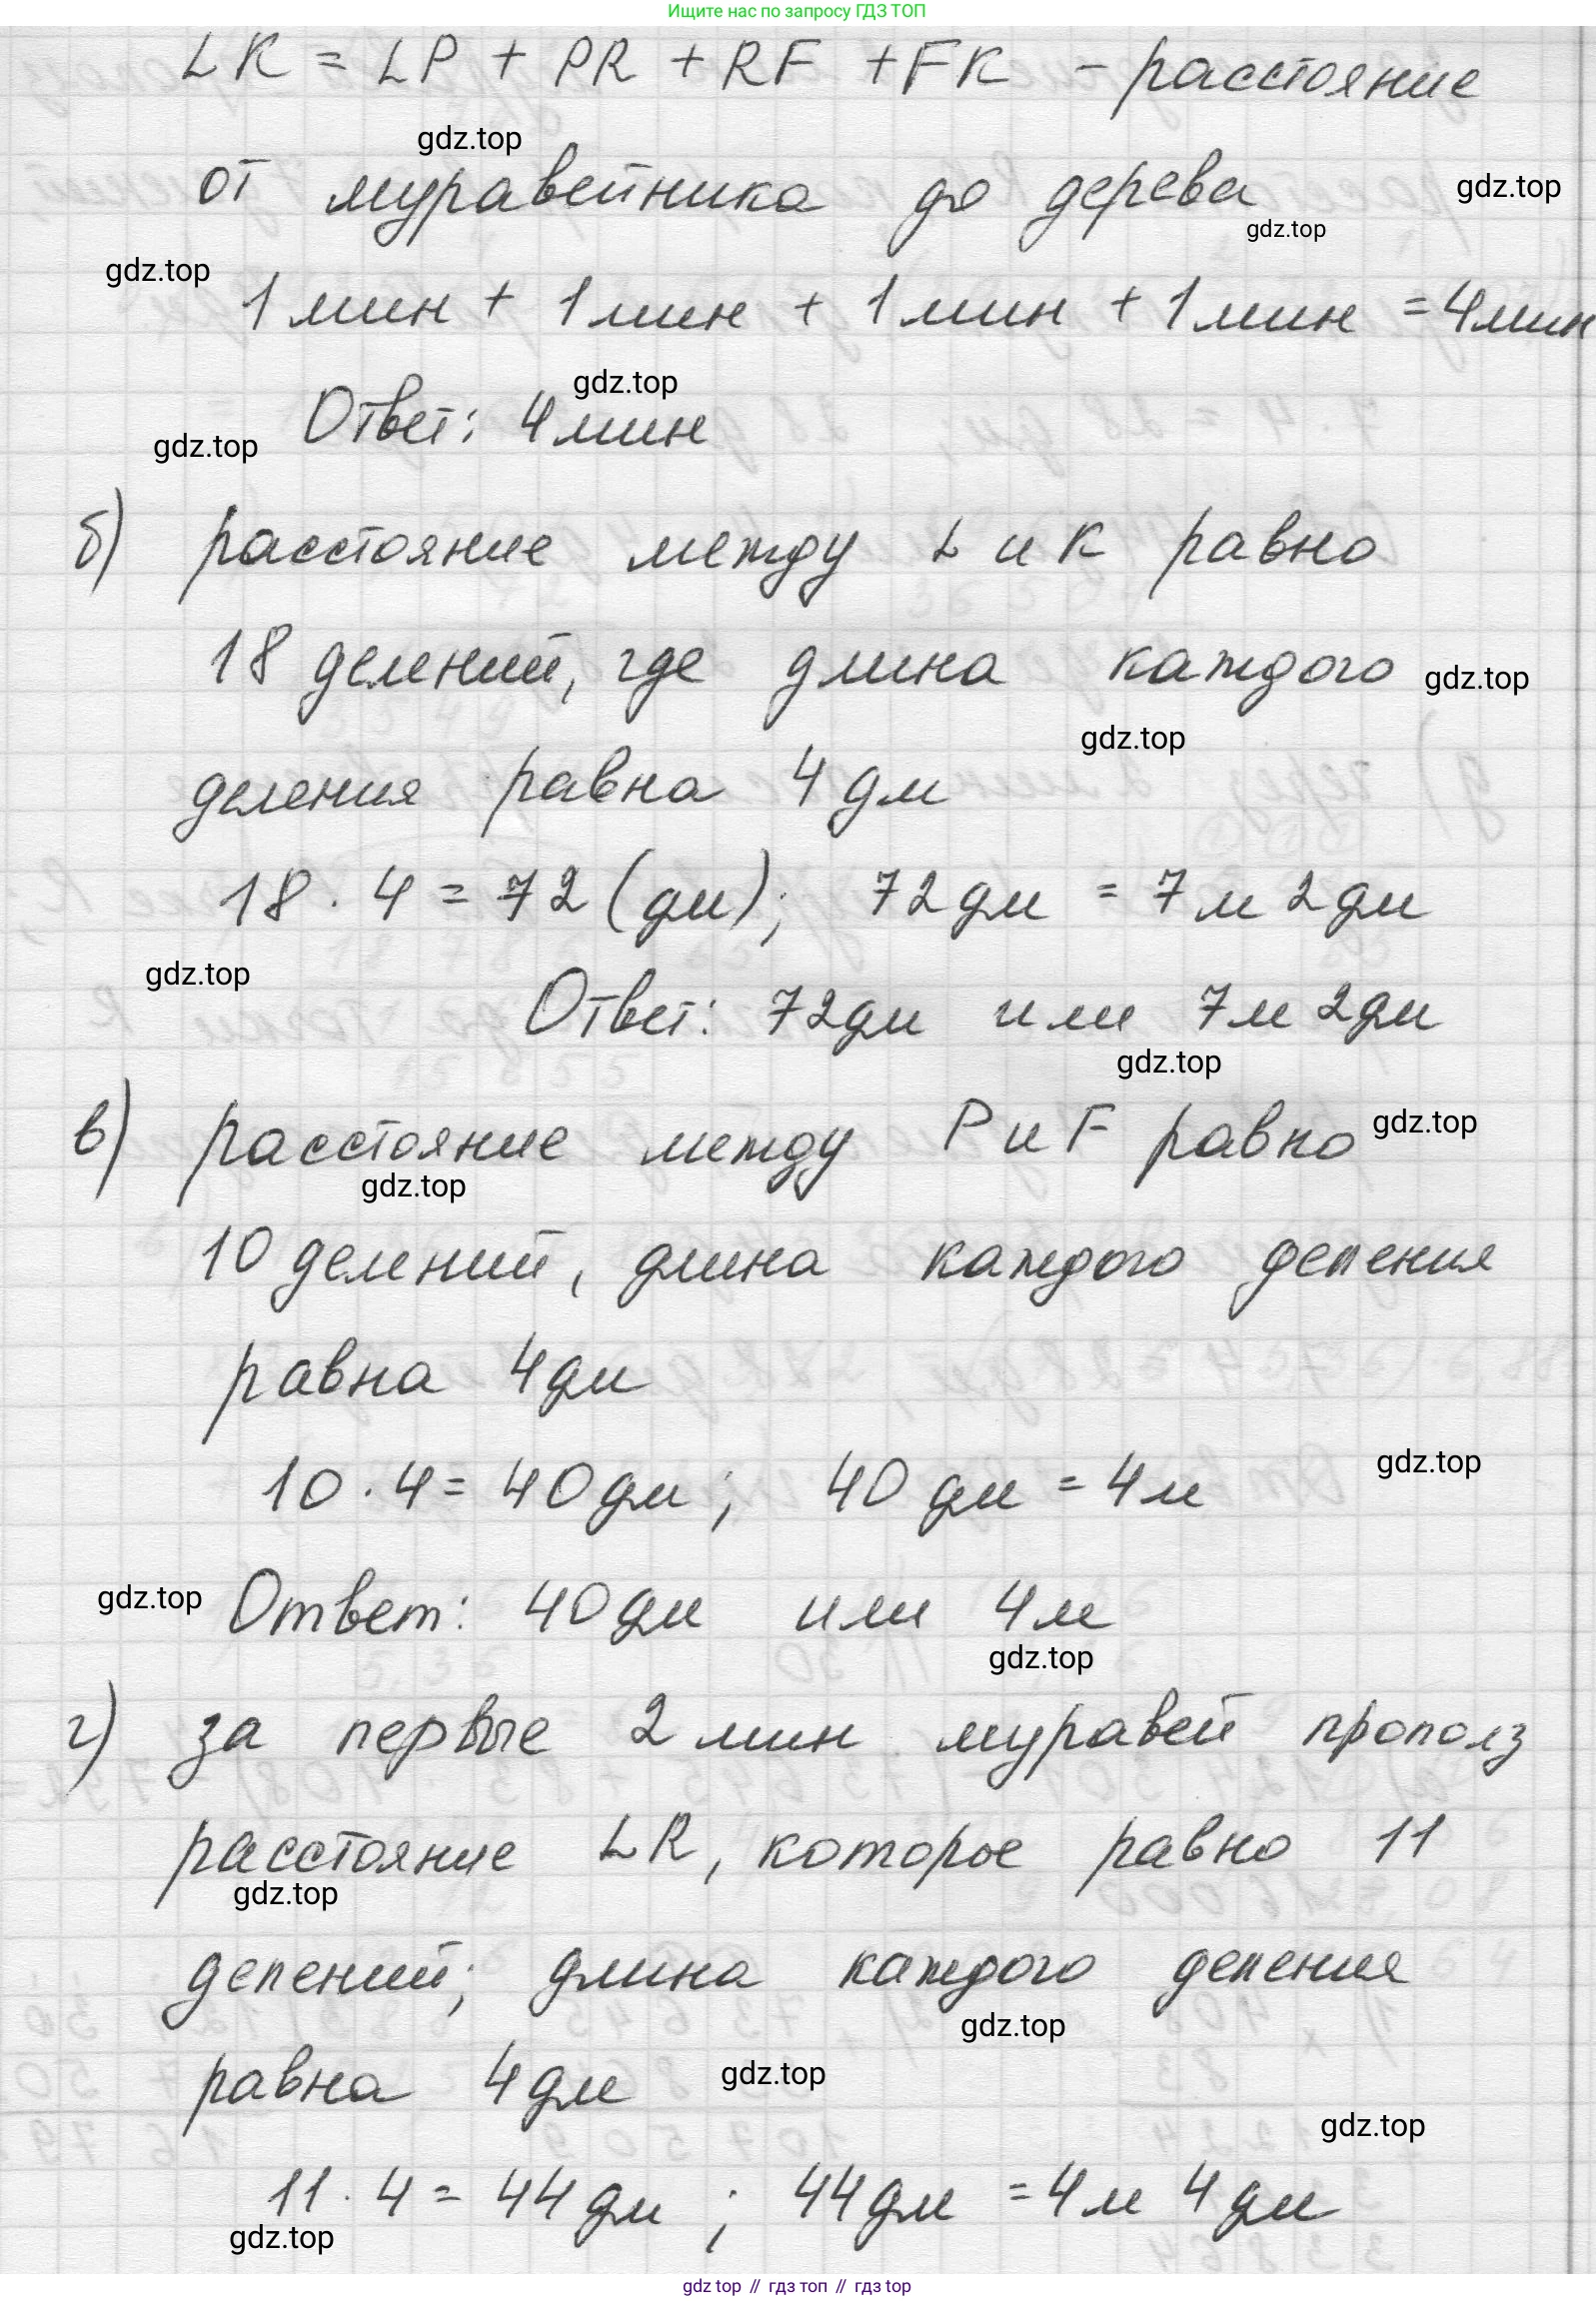 Ищите нас по запросу ГДЗ ТОП
LK = LP + PR + RF + FK - расстояние
gdz.top
от муравейника до дерева
gdz.top
gdz.top
gdz.top
1 мин + 1 мин + 1 мин + 1 мин = 4 мин
gdz.top
Ответ: 4 мин
gdz.top
б) расстояние между L и K равно
18 делений, где длина каждого
gdz.top
gdz.top
деления равна 4 дм
18 · 4 = 72 (дм); 72 дм = 7 м 2 дм
gdz.top
Ответ: 72 дм или 7 м 2 дм
gdz.top
в) расстояние между P и F равно
gdz.top
gdz.top
10 делений, длина каждого деления
равна 4 дм
10 · 4 = 40 дм; 40 дм = 4 м
gdz.top
gdz.top
Ответ: 40 дм или 4 м
gdz.top
г) за первые 2 мин муравей прополз
расстояние LR, которое равно 11
gdz.top
делений; длина каждого деления
gdz.top
равна 4 дм
gdz.top
gdz.top
11 · 4 = 44 дм; 44 дм = 4 м 4 дм
gdz.top
gdz top // гдз топ // gdz top